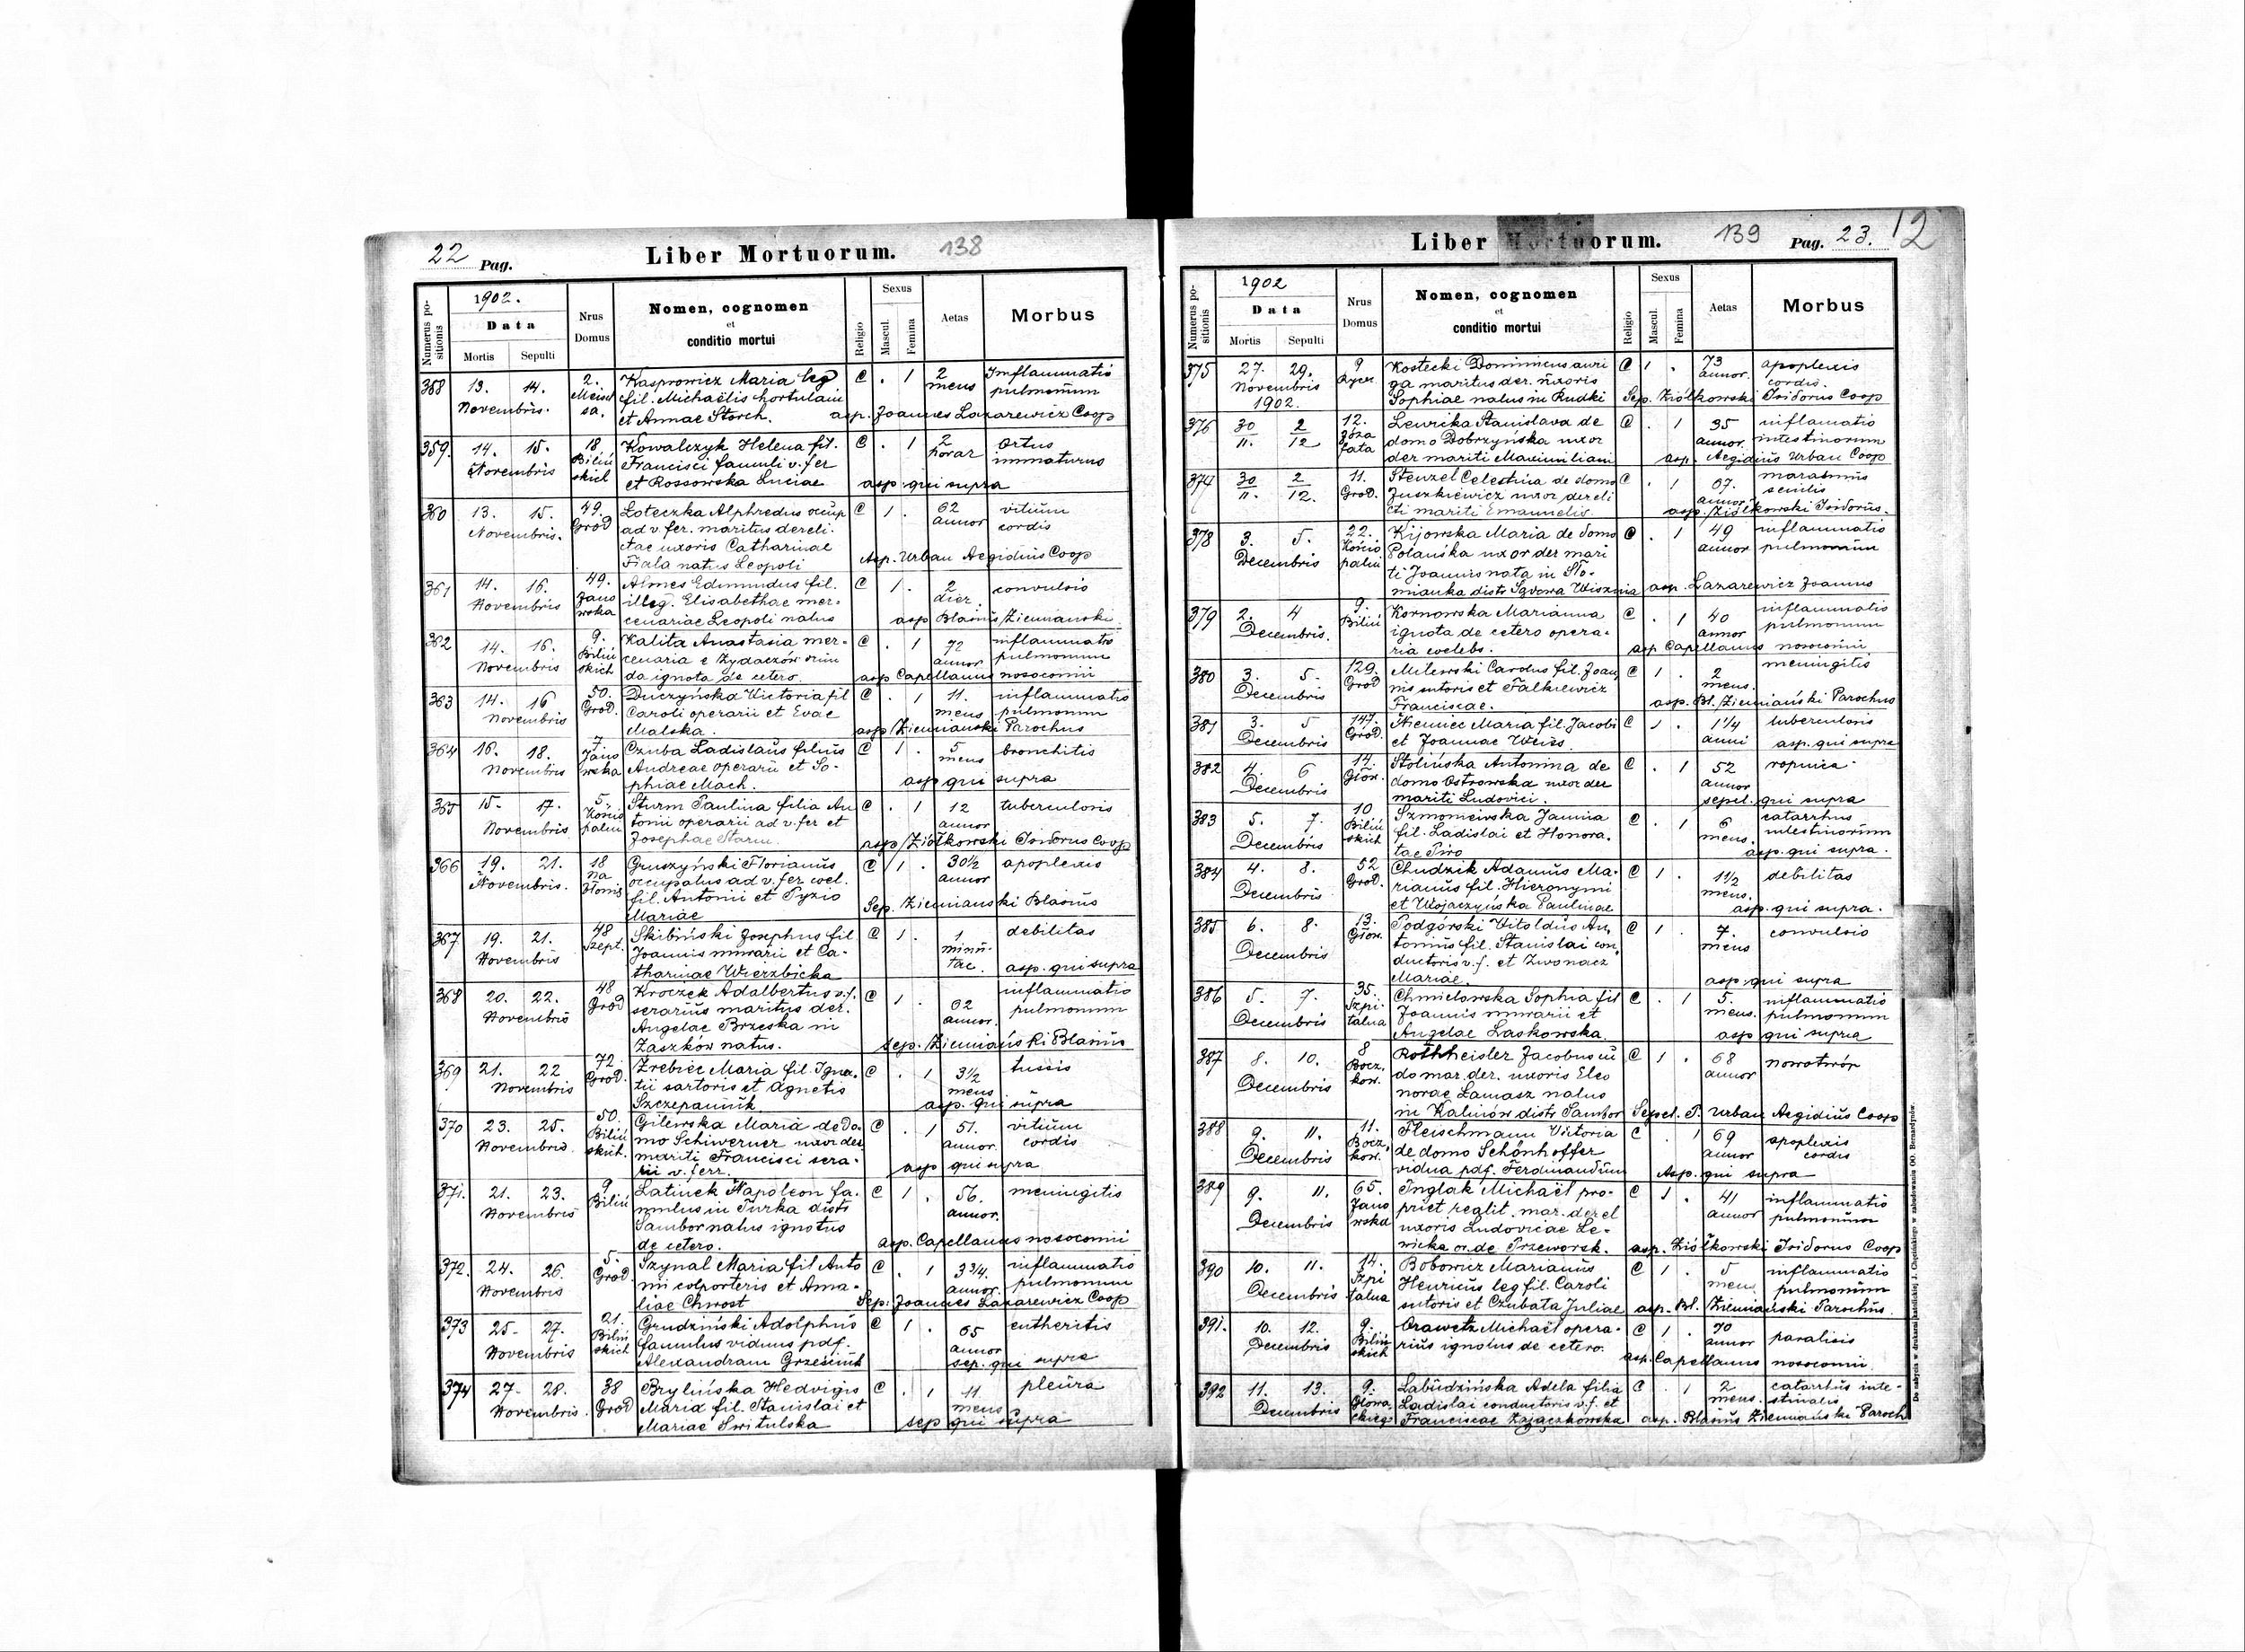 22 Pag.
Liber Mortuorum.
138
Numerus positionis
1902.
Data
Mortis Sepulti
Nrus Domus
Nomen, cognomen
et
conditio mortui
Religio
Sexus
Mascul. Femina
Aetas
Morbus
358 13. 14. 2. Kasprowicz Maria leg C . 1 2 Inflammatio
Novembris. fil. Michaëlis hortulani mens pulmonum
sa. et Annae Storch. asp. Joannes Lazarewicz Coop
359. 14. 15. 18. Kowalczyk Helena fil. C . 1 2 Ortus
Novembris Biliń Francisci famuli v. fer horar immaturus
skich et Rossowska Luciae asp. qui supra
360 13. 15. 49. Loteczka Alphredus occup C 1 . 62 vitium
Novembris. Grod ad v. fer. maritus dereli- annor cordis
ctae uxoris Catharinae
Fiala natus Leopoli Asp. Urban Aegidius Coop
361 14. 16. 49. Aimes Edmundus fil. C 1 . 2 convulsio
Novembris Jano illeg. Elisabethae mer- dier
wska cenariae Leopoli natus asp Blasius Ziemiański
362 14. 16. 9. Kalita Anastasia mer- C . 1 72 inflammatio
Novembris Biliń cenaria e Żydaczów oriun annor pulmonum
skich da ignota de cetero. asp Capellanus nosocomii
363 14. 16 50. Duczyńska Victoria fil C . 1 11. inflammatio
Novembris Grod. Caroli operarii et Evae mens pulmonum
Malska. asp Ziemianski Parochus
364 16. 18. 7 Czuba Ladislaus filius C 1 . 5 bronchitis
Novembris Jano Andreae operarii et So- mens
wska phiae Mach. asp qui supra
365 15. 17. 5. Sturm Paulina filia An C . 1 12 tuberculosis
Novembris Końo tonii operarii ad v. fer et annor
palni Josephae asp Ziółkowski Isidorus Coop
366 19. 21. 18 Gruszyński Florianus C 1 . 30½ apoplexis
Novembris. na occupatus ad v. fer coel. annor
Błonie fil. Antonii et Pyzio
Mariae Sep. Ziemianski Blasius
367 19. 21. 48 Skibiński Josephus fil C 1 . 1 debilitas
Novembris Szept. Joannis murarii et Ca- minu-
tharinae Wierzbicka tae. asp. qui supra
368 20. 22. 48 Kroczek Adalbertus v. f. C 1 . 62 inflammatio
Novembris Grod serarius maritus der. annor. pulmonum
Angelae Brzeska in
Zaszków natus. sep. Ziemiański Blasius
369 21. 22 72 Źrebiec Maria fil. Igna- C . 1 3½ tussis
Novembris Grod. tii sartoris et Agnetis mens
Szczepaniuk asp. qui supra
370 23. 25. 50. Gilewska Maria de Do- C . 1 51. vitium
Novembris Biliń mo Schiwerner uxor der annor. cordis
skich. mariti Francisci sera-
rii v. ferr. asp qui supra
371. 21. 23. 9 Latinek Napoleon fa- C 1 . 56. meningitis
Novembris Biliń mulus in Turka distr annor.
Sambor natus ignotus
de cetero. asp. Capellanus nosocomii
372. 24. 26. 5. Szynal Maria fil Anto C . 1 3¾. inflammatio
Novembris Grod nii colporteris et Ama- annor. pulmonum
liae Chwost Sep. Joannes Lazarewicz Coop
373 25. 27. 21. Grudziński Adolphus C 1 . 65 entheritis
Novembris Biliń famulus viduus pdf. annor
skich Alexandram Grzesiuk sep. qui supra
374 27. 28. 38 Brylińska Hedvigis C . 1 11. pleura
Novembris. Grod Maria fil. Stanislai et mens
Mariae Switulska sep qui supra
Liber Mortuorum.
139
Pag. 23.
12
Numerus positionis
1902
Data
Mortis Sepulti
Nrus Domus
Nomen, cognomen
et
conditio mortui
Religio
Sexus
Mascul. Femina
Aetas
Morbus
375 27. 29. 9 Kostecki Dominicus auri C 1 . 73 apoplexis
Novembris ga maritus der. uxoris annor. cordis.
1902. Sophiae natus in Rudki Sep. Ziółkowski Isidorus Coop
376 30/11. 2/12 12. Lewicka Stanislava de C . 1 35 inflamatio
Józa domo Dobrzyńska uxor annor. intestinorum
fata der mariti Maximiliani asp. Aegidius Urban Coop
374 30/11. 2/12. 11. Stenzel Celestina de domo C . 1 67. marasmus
Grod. Juszkiewicz uxor dereli annor senilis
cti mariti Emanuelis asp. Ziółkowski Isidorus.
378 3. 5. 22. Kijowska Maria de domo C . 1 49 inflammatio
Decembris Polańska uxor der mari annor pulmonum
palni ti Joannis nata in Sło-
mianka distr Sądowa Wisznia asp. Lazarewicz Joannes
379 2. 4 9. Kornowska Marianna C . 1 40 inflammatio
Decembris. Biliń ignota de cetero opera- annor pulmonum
ria coelebs. asp Capellanus nosocomii
380 3. 5. 129. Milewski Carolus fil. Joan C 1 . 2 meningitis
Decembris Grod nis sutoris et Falkiewicz mens.
Franciscae. asp. Bl. Ziemiański Parochus
381 3. 5 147. Niemiec Maria fil. Jacobi C 1 . 1¼ tuberculosis
Decembris Grod. et Joannae Weiss anni asp. qui supra
382 4. 6 14. Stolińska Antonina de C . 1 52 ropnica
Decembris Głow. domo Ostrowska uxor der annor
mariti Ludovici. sepel. qui supra
383 5. 7. 10 Szmoniewska Janina C . 1 6 catarrhus
Decembris Biliń fil. Ladislai et Honora- mens. intestinorum
skich tae Piro asp. qui supra.
384 4. 8. 52 Chudzik Adamus Ma- C 1 . 1½ debilitas
Decembris Grod. rianus fil. Hieronymi mens.
et Wojaczyńska Paulinae asp. qui supra.
385 6. 8. 13. Podgórski Witoldus An- C 1 . 7. convulsio
Decembris Głow. tonius fil. Stanislai con mens
ductoris v. f. et Zwonacz
Mariae. asp. qui supra
386 5. 7. 35. Chmielowska Sophia fil C . 1 5. inflammatio
Decembris Szpi- Joannis murarii et mens. pulmonum
talna Angelae Laskowska asp qui supra
387 8. 10. 8 Rothheisler Jacobus cu C 1 . 68 nowotwór
Decembris Bocz. do mar. der. uxoris Eleo annor
kow. norae Lamasz natus
in Kalinów distr Sambor Sepel. P. Urban Aegidius Coop
388 9. 11. 11. Fleischmann Victoria C . 1 69 apoplexis
Decembris Bocz. de domo Schönhoffer annor cordis
kow. vidua pdf. Ferdinandum Asp. qui supra
389 9. 11. 65. Inglak Michaël pro- C 1 . 41 inflammatio
Decembris Jano priet realit. mar. derel annor pulmonum
wska uxoris Ludovicae Le-
wicka or. de Przeworsk. asp. Ziółkowski Isidorus Coop
390 10. 11. 14. Bobowicz Marianus C 1 . 5 inflammatio
Decembris Szpi Henricus leg fil. Caroli mens pulmonum
talna sutoris et Czubata Juliae asp. Bl. Ziemiański Parochus.
391. 10. 12. 9. Orawetz Michaël opera- C 1 . 70 paralisis
Decembris Biliń rius ignotus de cetero. annor
skich asp. Capellanus nosocomii
392 11. 13. 9. Labudzińska Adela filia C . 1 2 catarrhus inte-
Decembris Głowa- Ladislai conductoris v. f. et mens. stinalis
ckiego Franciscae Zajączkowska asp. Blasius Ziemiański Paroch
De nabycia w drukarni katolickiej J. Chęcińskiego w zabudowaniu OO. Bernardynów.